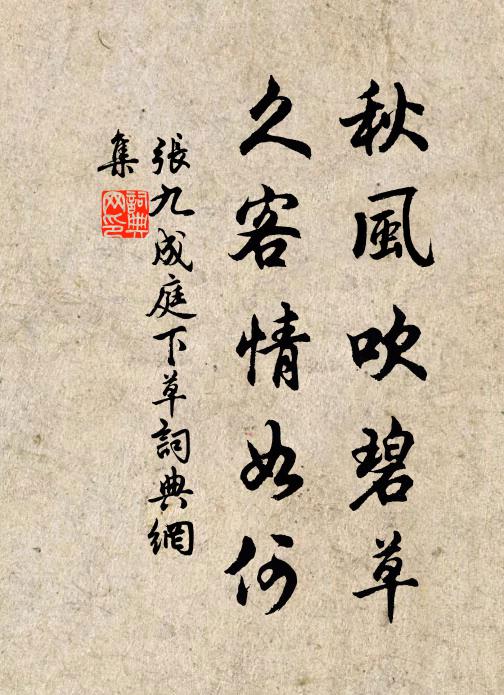 秋風吹碧草
久客情如何
張九成庭下草詞典網
集
詞典
网印